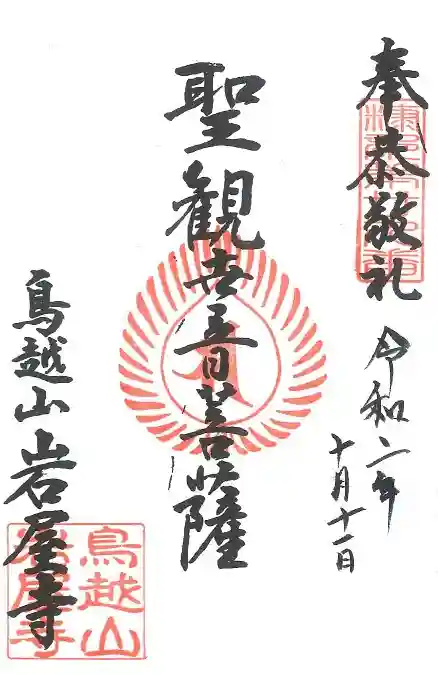 奉恭敬礼
令和二年
十月十一日
聖観世音菩薩
鳥越山岩屋寺
鳥越山
岩屋寺